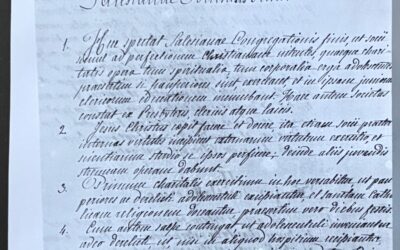 Salesianae
1. Huc spectat Salesianae Congregationis finis ut socii
simul ad perfectionem Christianam nitentes quaeque chari-
tatis opera tum spiritualia, tum corporalia erga adolescentes
praesertim si pauperiores sint, exerceant et in ipsam juniorum
clericorum educationem incumbant. Haec autem societas
constat ex Presbyteris, clericis atque laicis.
2. Jesus Christus cepit facere et docere, ita etiam socii
internas virtutis externarum virtutum exercitio et
scientiarum studio se ipsos perficere; deinde aliis juvandis
strenuam operam dabunt.
3. Primum charitatis exercitium in hoc versabitur, ut pau-
periores ac derelicti adolescentuli excipiantur, et sanctam Catho-
licam religionem doceantur, praesertim vero diebus festis.
4. Cum autem saepe contingat ut adolescentuli inveniantur
adeo derelicti, ut nisi in aliquod hospitium recipiantur,